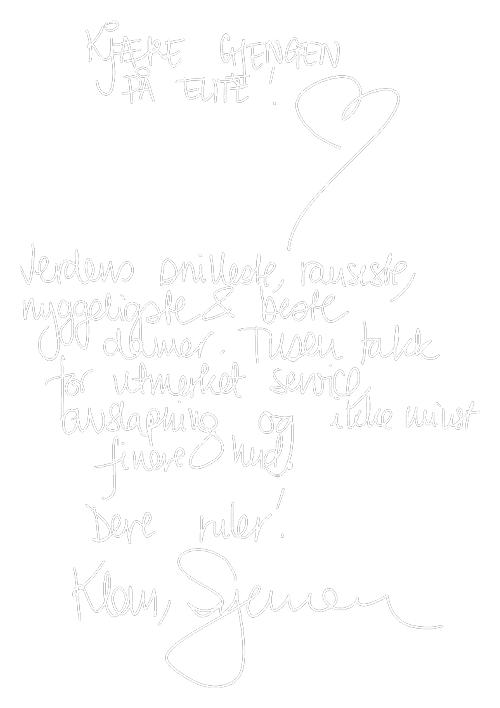 KJÆRE GJENGEN
PÅ ELITE!
Verdens snilleste, rauseste,
hyggeligste & beste
damer. Tusen takk
for utmerket service,
avslapning og ikke minst
finere hud.
Dere ruler!
Klem,